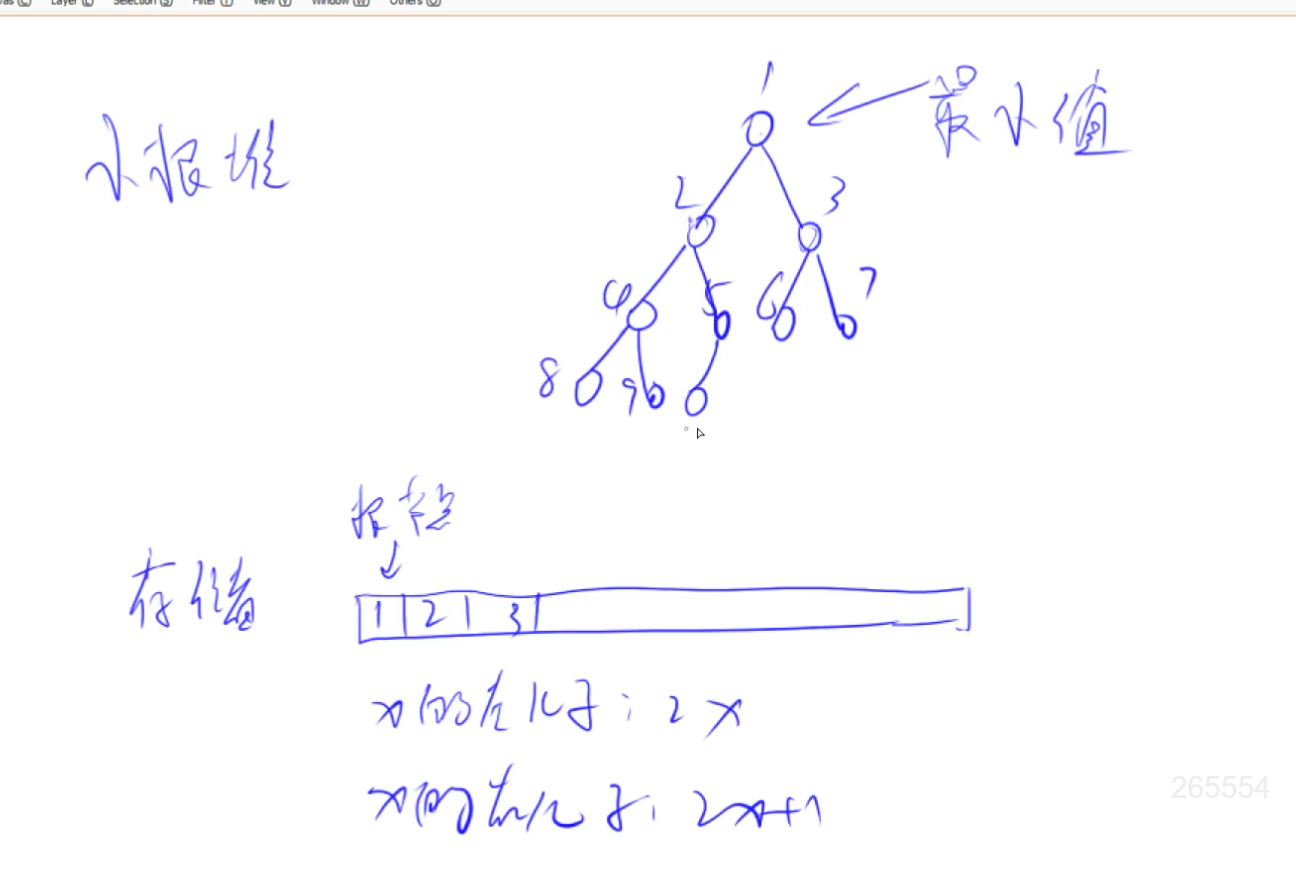 Layer (L) Selection (S) Filter (T) View (V) Window (W) Others (O)
1
小根堆
最小值
2 3
4 5 6 7
8 9
根节点
存储
1 2 3
x的左儿子: 2x
x的右儿子: 2x+1
265554